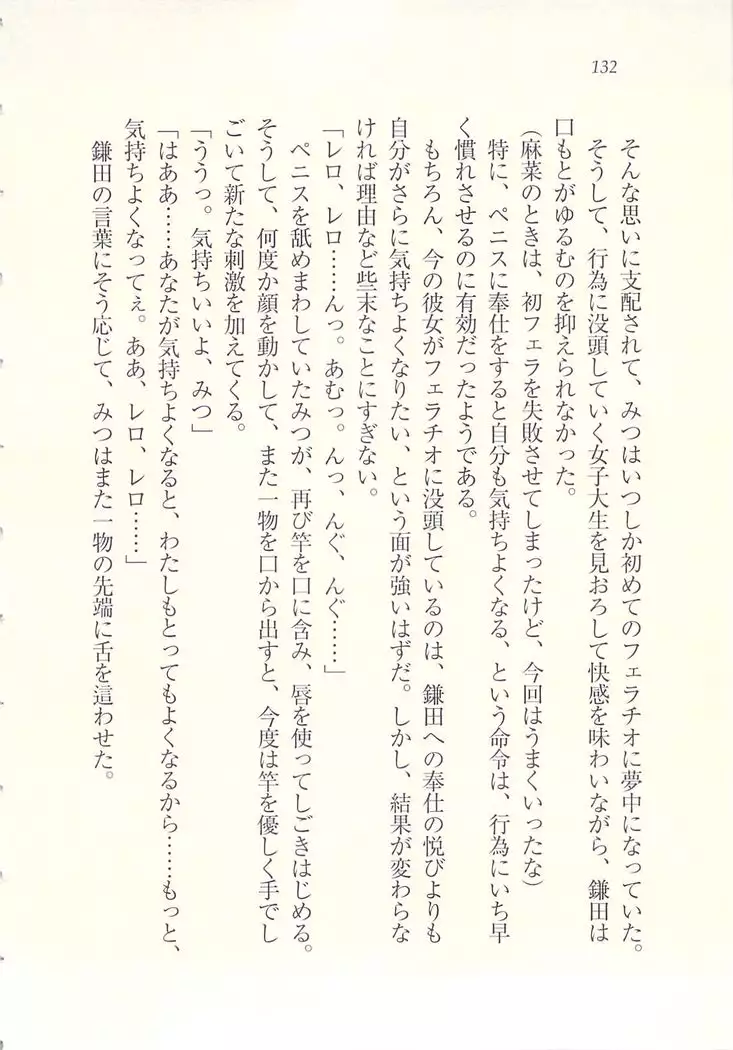 132
そんな思いに支配されて、みつはいつしか初めてのフェラチオに夢中になっていた。
そうして、行為に没頭していく女子大生を見おろして快感を味わいながら、鎌田は
口もとがゆるむのを抑えられなかった。
(麻菜のときは、初フェラを失敗させてしまったけど、今回はうまくいったな)
特に、ペニスに奉仕をすると自分も気持ちよくなる、という命令は、行為にいち早
く慣れさせるのに有効だったようである。
もちろん、今の彼女がフェラチオに没頭しているのは、鎌田への奉仕の悦びよりも
自分がさらに気持ちよくなりたい、という面が強いはずだ。しかし、結果が変わらな
ければ理由など些末なことにすぎない。
「レロ、レロ……んっ。あむっ。んっ、んぐ、んぐ……」
ペニスを舐めまわしていたみつが、再び竿を口に含み、唇を使ってしごきはじめる。
そうして、何度か顔を動かして、また一物を口から出すと、今度は竿を優しく手でし
ごいて新たな刺激を加えてくる。
「ううっ。気持ちいいよ、みつ」
「はああ……あなたが気持ちよくなると、わたしもとってもよくなるから……もっと、
気持ちよくなってぇ。ああ、レロ、レロ……」
鎌田の言葉にそう応じて、みつはまた一物の先端に舌を這わせた。